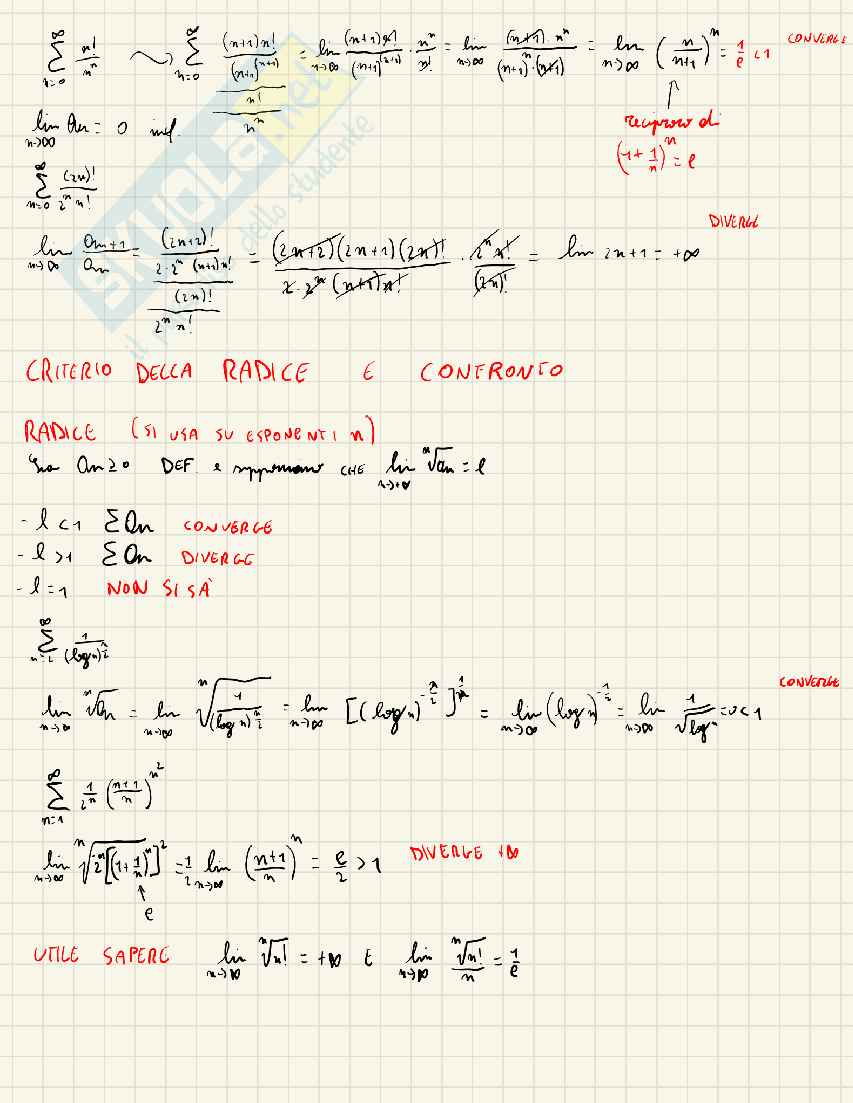 ∑_{n=0}^{∞} n!/n^n ⤳ ∑_{n=0}^{∞} ((n+1)n!/(n+1)^{(n+1)})/(n!/n^n) = lim_{n→∞} (n+1)n!/(n+1)^{(n+1)} · n^n/n! = lim_{n→∞} (n+1)·n^n/((n+1)^n·(n+1)) = lim_{n→∞} (n/(n+1))^n = 1/e < 1 CONVERGE
lim_{n→∞} an = 0 inf.
reciproco di
(1+1/n)^n = e
∑_{n=0}^{∞} (2n)!/(2^n n!)
DIVERGE
lim_{n→∞} an+1/an = ((2n+2)!/(2·2^n (n+1)n!))/((2n)!/(2^n n!)) = (2n+2)(2n+1)(2n)!/(2·2^n(n+1)n!) · 2^n n!/(2n)! = lim 2n+1 = +∞
CRITERIO DELLA RADICE E CONFRONTO
RADICE (SI USA SU ESPONENTI n)
Sia an ≥ 0 DEF. e supponiamo CHE lim_{n→+∞} ⁿ√an = l
- l < 1 ∑an CONVERGE
- l > 1 ∑an DIVERGE
- l = 1 NON SI SÀ
∑_{n=2}^{∞} 1/(log n)^{n/2}
CONVERGE
lim_{n→∞} ⁿ√an = lim_{n→∞} ⁿ√(1/(log n)^{n/2}) = lim_{n→∞} [(log n)^{-n/2}]^{1/n} = lim_{n→∞} (log n)^{-1/2} = lim_{n→∞} 1/√log n = 0 < 1
∑_{n=1}^{∞} 1/2^n ((n+1)/n)^{n^2}
lim_{n→∞} ⁿ√(2^{-n}[(1+1/n)^n]^2) = 1/2 lim_{n→∞} ((n+1)/n)^n = e/2 > 1 DIVERGE +∞
e
UTILE SAPERE lim_{n→∞} ⁿ√n! = +∞ E lim_{n→∞} ⁿ√n!/n = 1/e
SKUOLA.net
dello studente